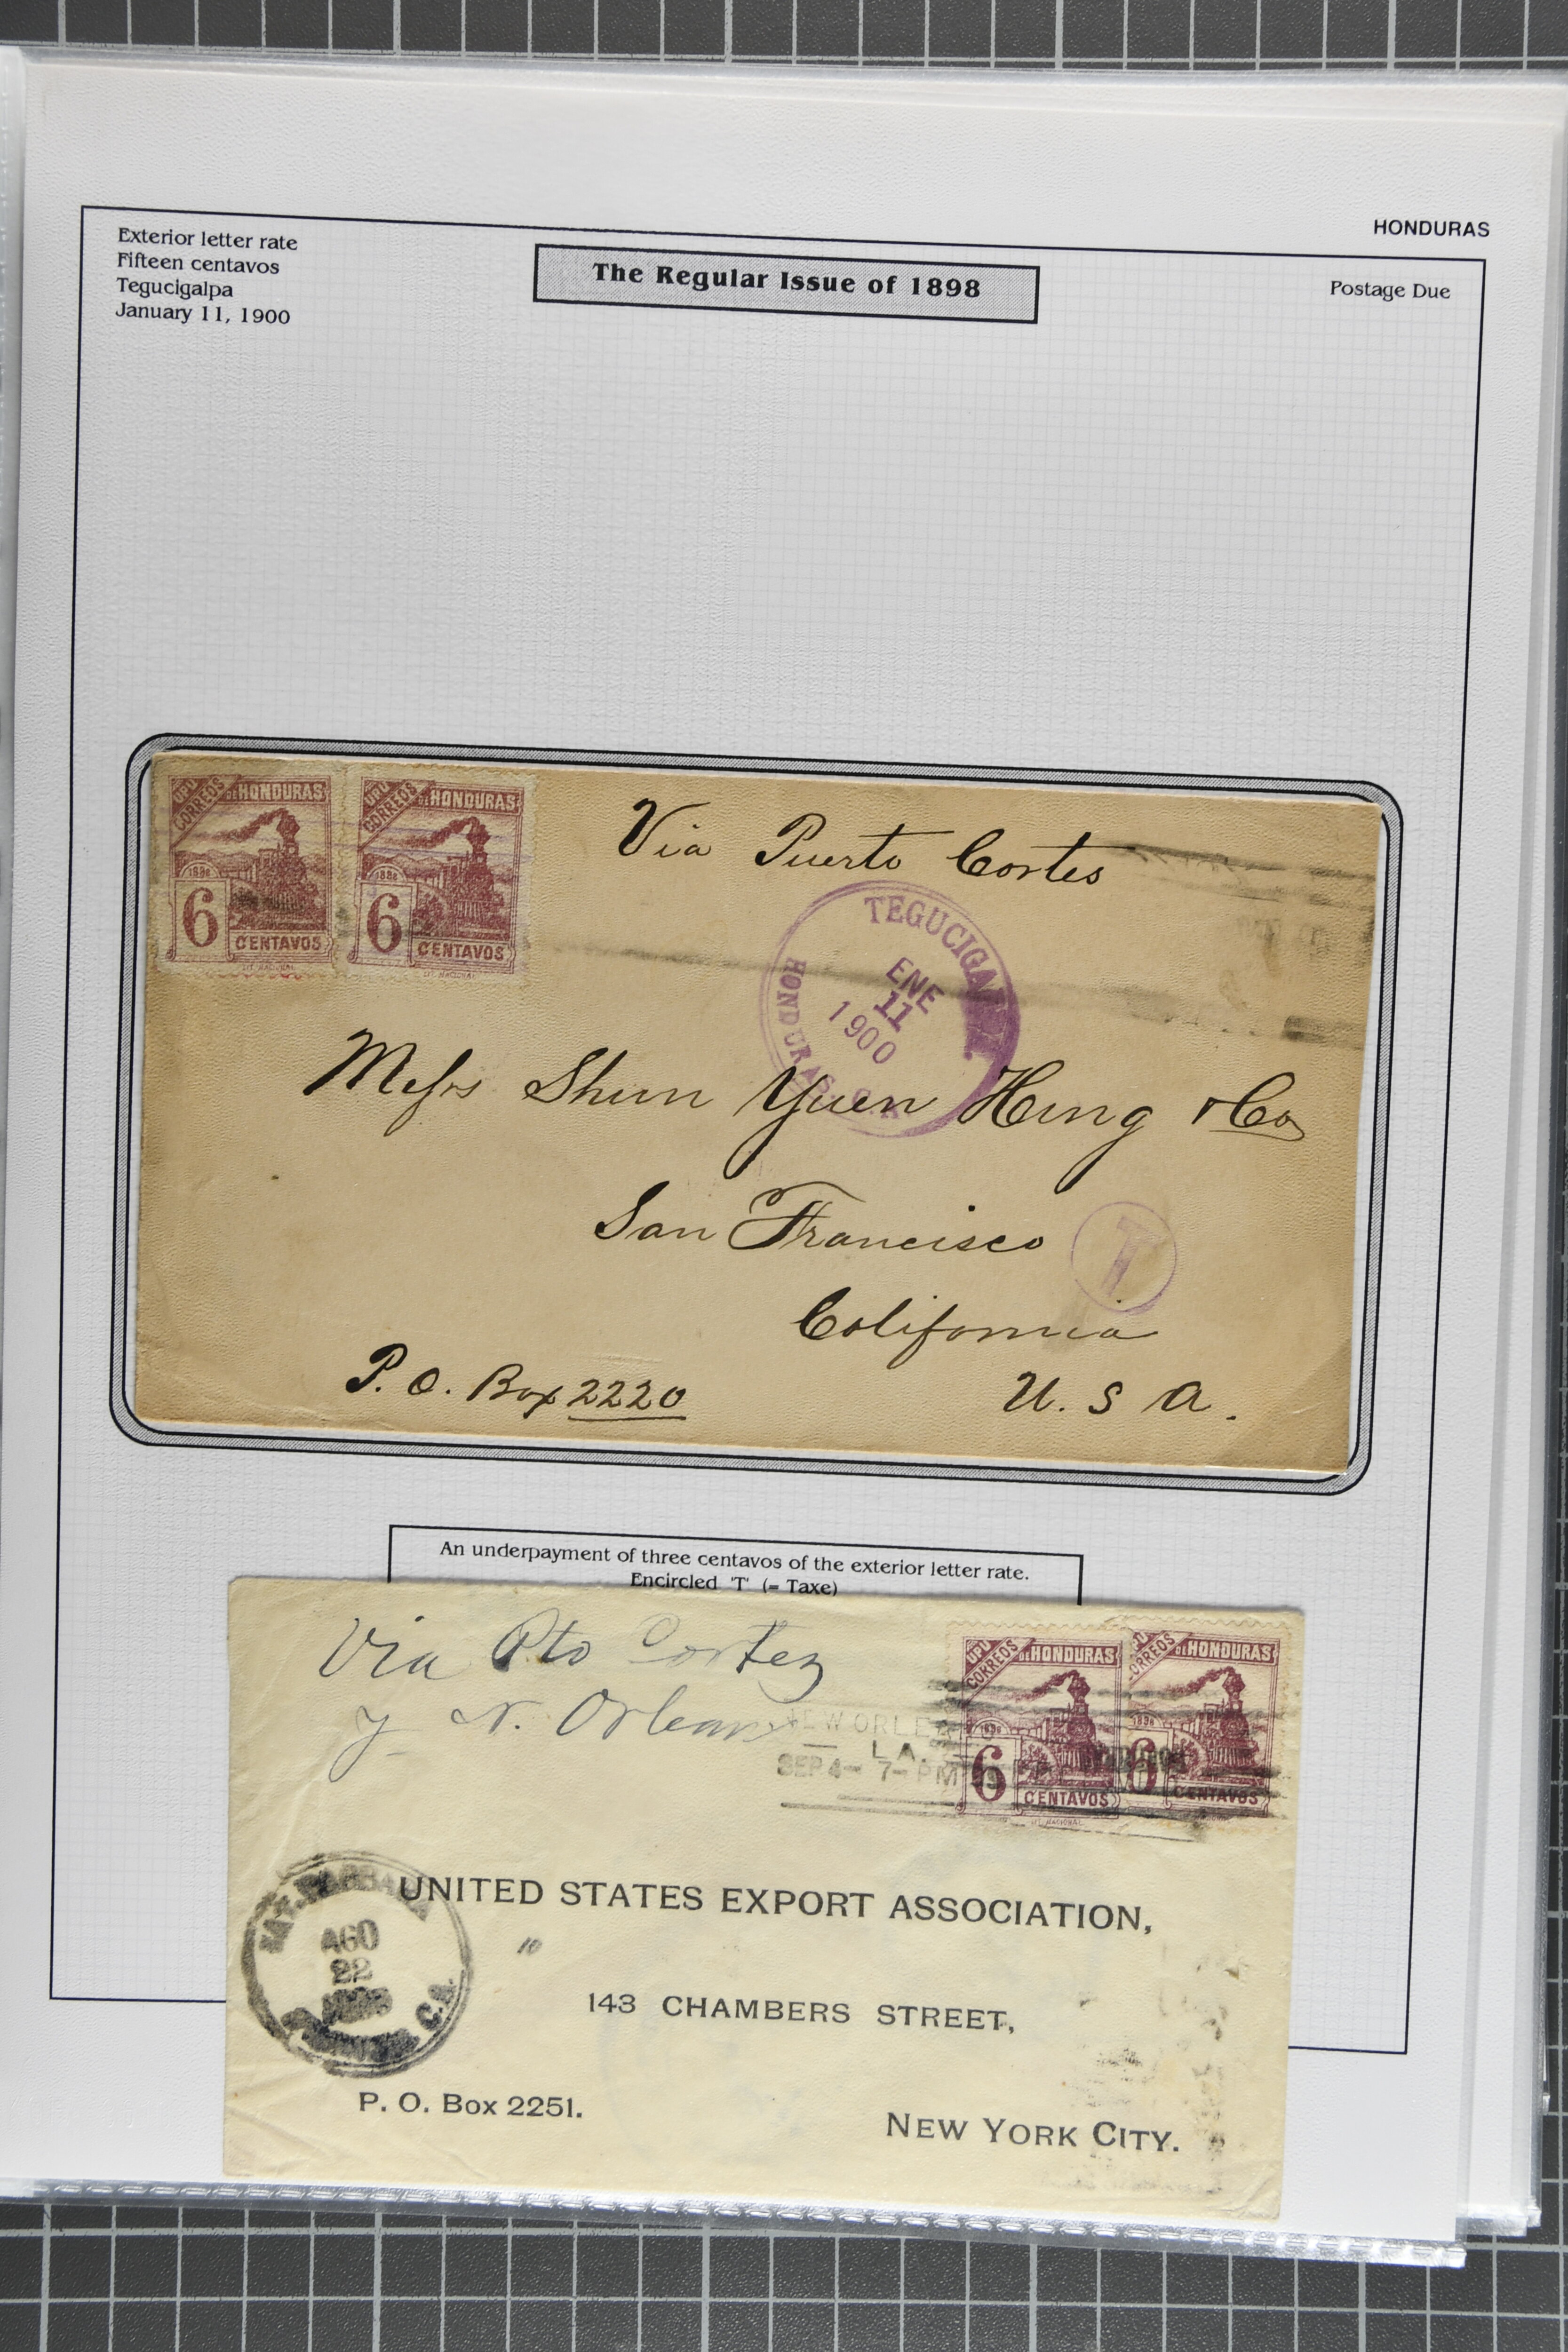 HONDURAS
Exterior letter rate
Fifteen centavos
Tegucigalpa
January 11, 1900
The Regular Issue of 1898
Postage Due
UPU
CORREOS
DE HONDURAS
1898
6
CENTAVOS
LIT. NACIONAL
UPU
CORREOS
DE HONDURAS
1898
6
CENTAVOS
LIT. NACIONAL
Via Puerto Cortes
TEGUCIGALPA
ENE
11
1900
HONDURAS
Messrs Shun Yuen Hing & Co
San Francisco
T
California
P. O. Box 2220
U. S A.
An underpayment of three centavos of the exterior letter rate.
Encircled 'T' (= Taxe)
Via Pto Cortez
y N. Orleans
NEW ORLE
LA.
SEP 4- 7-PM
UPU
CORREOS
DE HONDURAS
1898
6
CENTAVOS
LIT. NACIONAL
CORREOS
DE HONDURAS
1898
6
CENTAVOS
AGO
22
C.A.
UNITED STATES EXPORT ASSOCIATION,
10
143 CHAMBERS STREET,
P. O. Box 2251.
NEW YORK CITY.